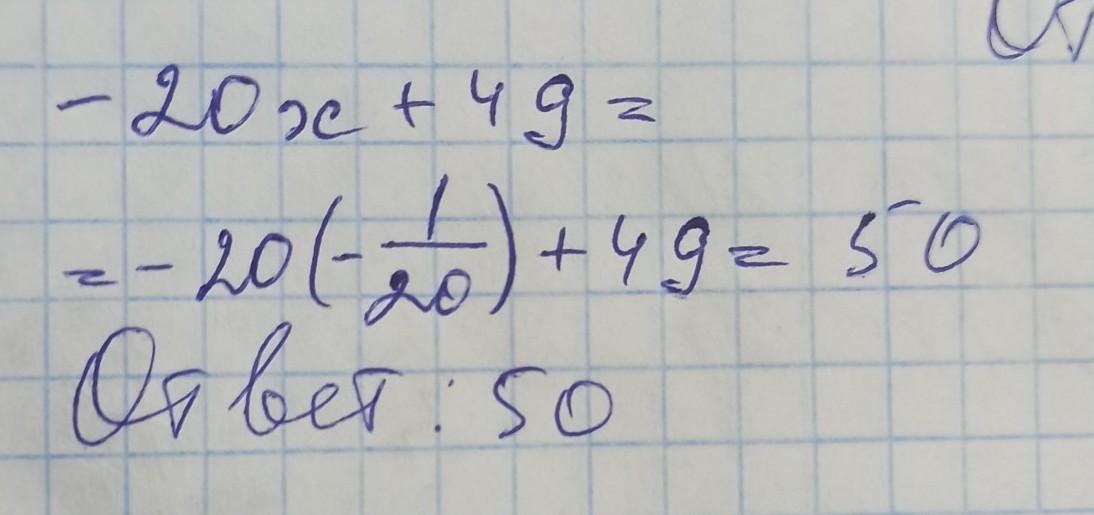 -20x + 49 =
= -20(-1/20) + 49 = 50
Ответ: 50